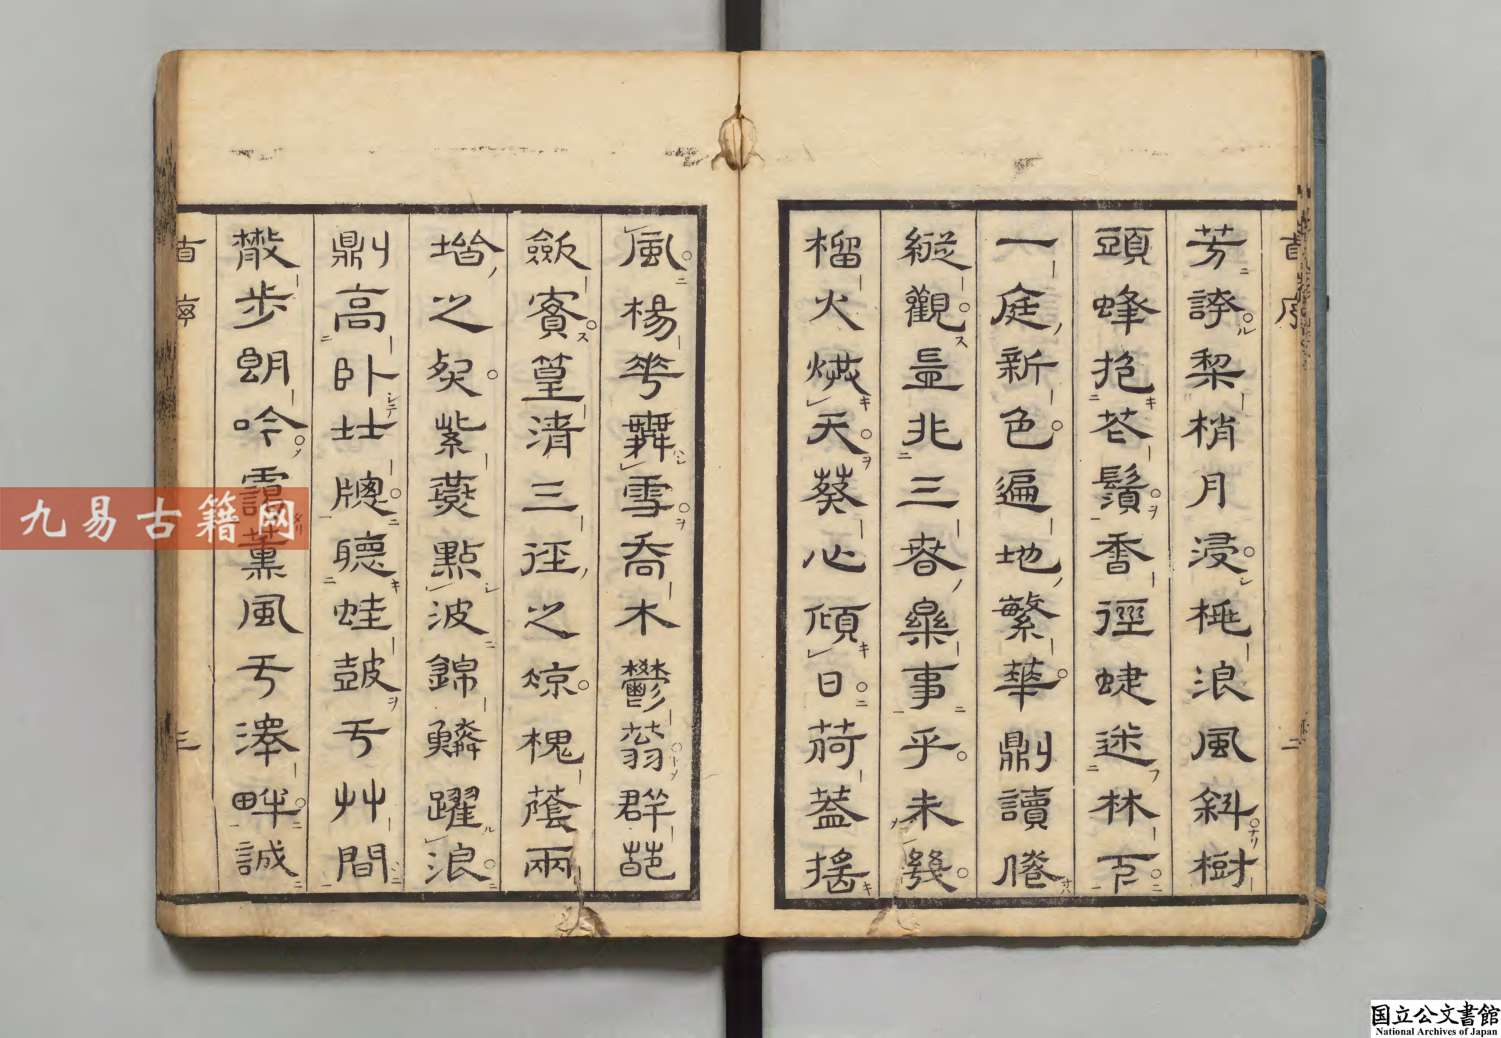 芳誇梨梢月浸桃浪風斜樹
頭蜂抱花鬚香徑蜨迷林下
一庭新色遍地繁華鼎讀倦
縱觀益非三春樂事乎未幾
榴火燃天葵心傾日荷蓋搖
風楊花舞雪喬木鬱蓊群葩
斂賓篁清三徑之涼槐蔭兩
堦之契紫燕點波錦鱗躍浪
鼎高臥北牕聽蛙鼓于艸間
散步朗吟靄薰風于澤畔誠
首序
二
首序
三
九易古籍网
国立公文書館
National Archives of Japan